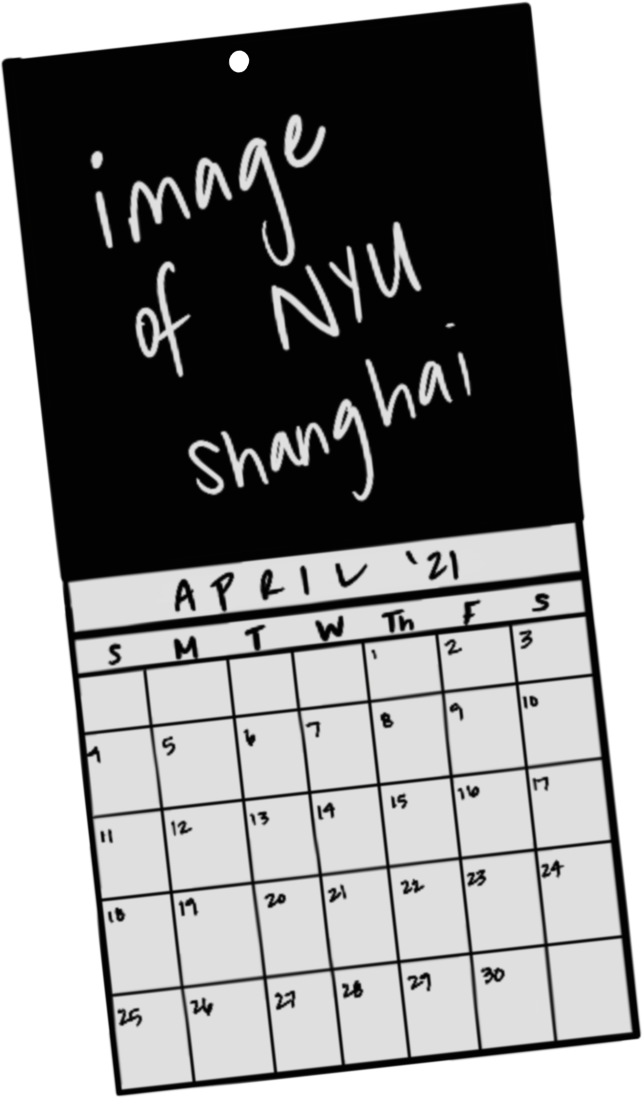 image
of NYU
shanghai
APRIL '21
S M T W Th F S
1 2 3
4 5 6 7 8 9 10
11 12 13 14 15 16 17
18 19 20 21 22 23 24
25 26 27 28 29 30